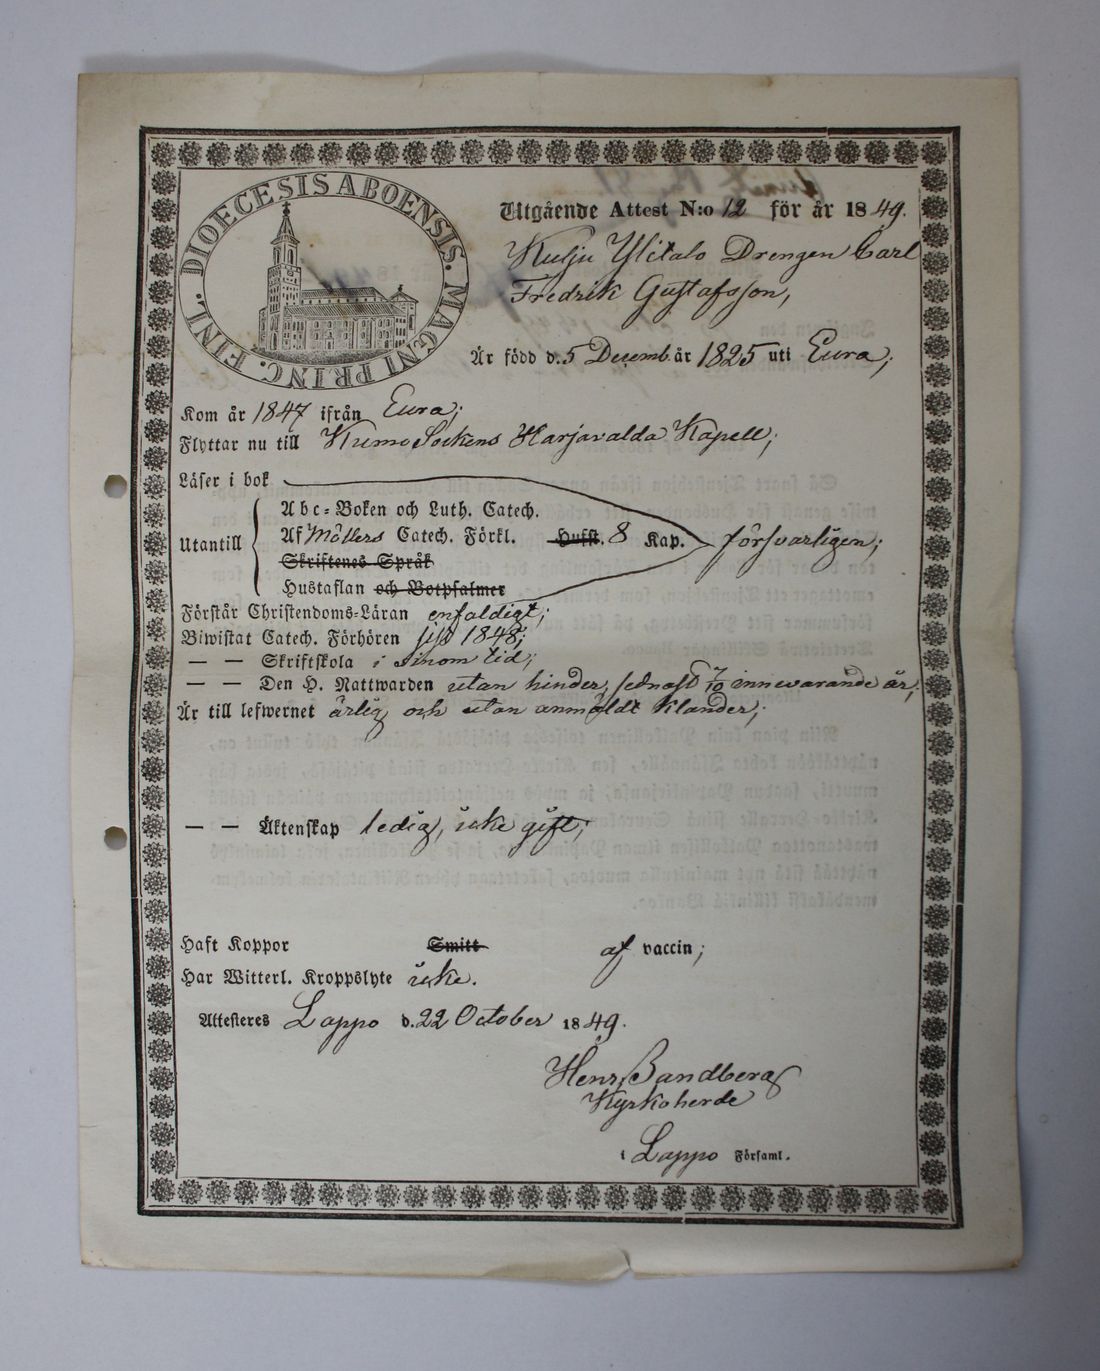 DIOECESIS ABOENSIS. MAGNI PRINC. FINL.
Utgående Attest N:o 12 för år 1849.
Kulju Ylitalo Drengen Carl
Fredrik Gustafsson,
Är född d. 5 Decemb. år 1825 uti Eura;
Kom år 1847 ifrån Eura;
Flyttar nu till Kumo Sockens Harjavalda Kapell;
Läser i bok
Abc-Boken och Luth. Catech.
Utantill Af Möllers Catech. Förkl. Hufst. 8 Kap. försvarligen;
Skriftenes Språk
Hustaflan och Botpsalmer
Förstår Christendoms-Läran enfaldigt;
Biwistat Catech. Förhören sist 1848;
— — Skriftskola i sinom tid;
— — Den H. Nattwarden utan hinder, sednast 7/10 innevarande år;
Är till lefwernet ärlig och utan anmäldt klander;
— — Äktenskap ledig, icke gift;
Haft Koppor Smitt af vaccin;
Har Witterl. Kroppslyte icke.
Attesteres Lappo d. 22 October 1849.
Henr. Sandberg
Kyrkoherde
i Lappo Församl.